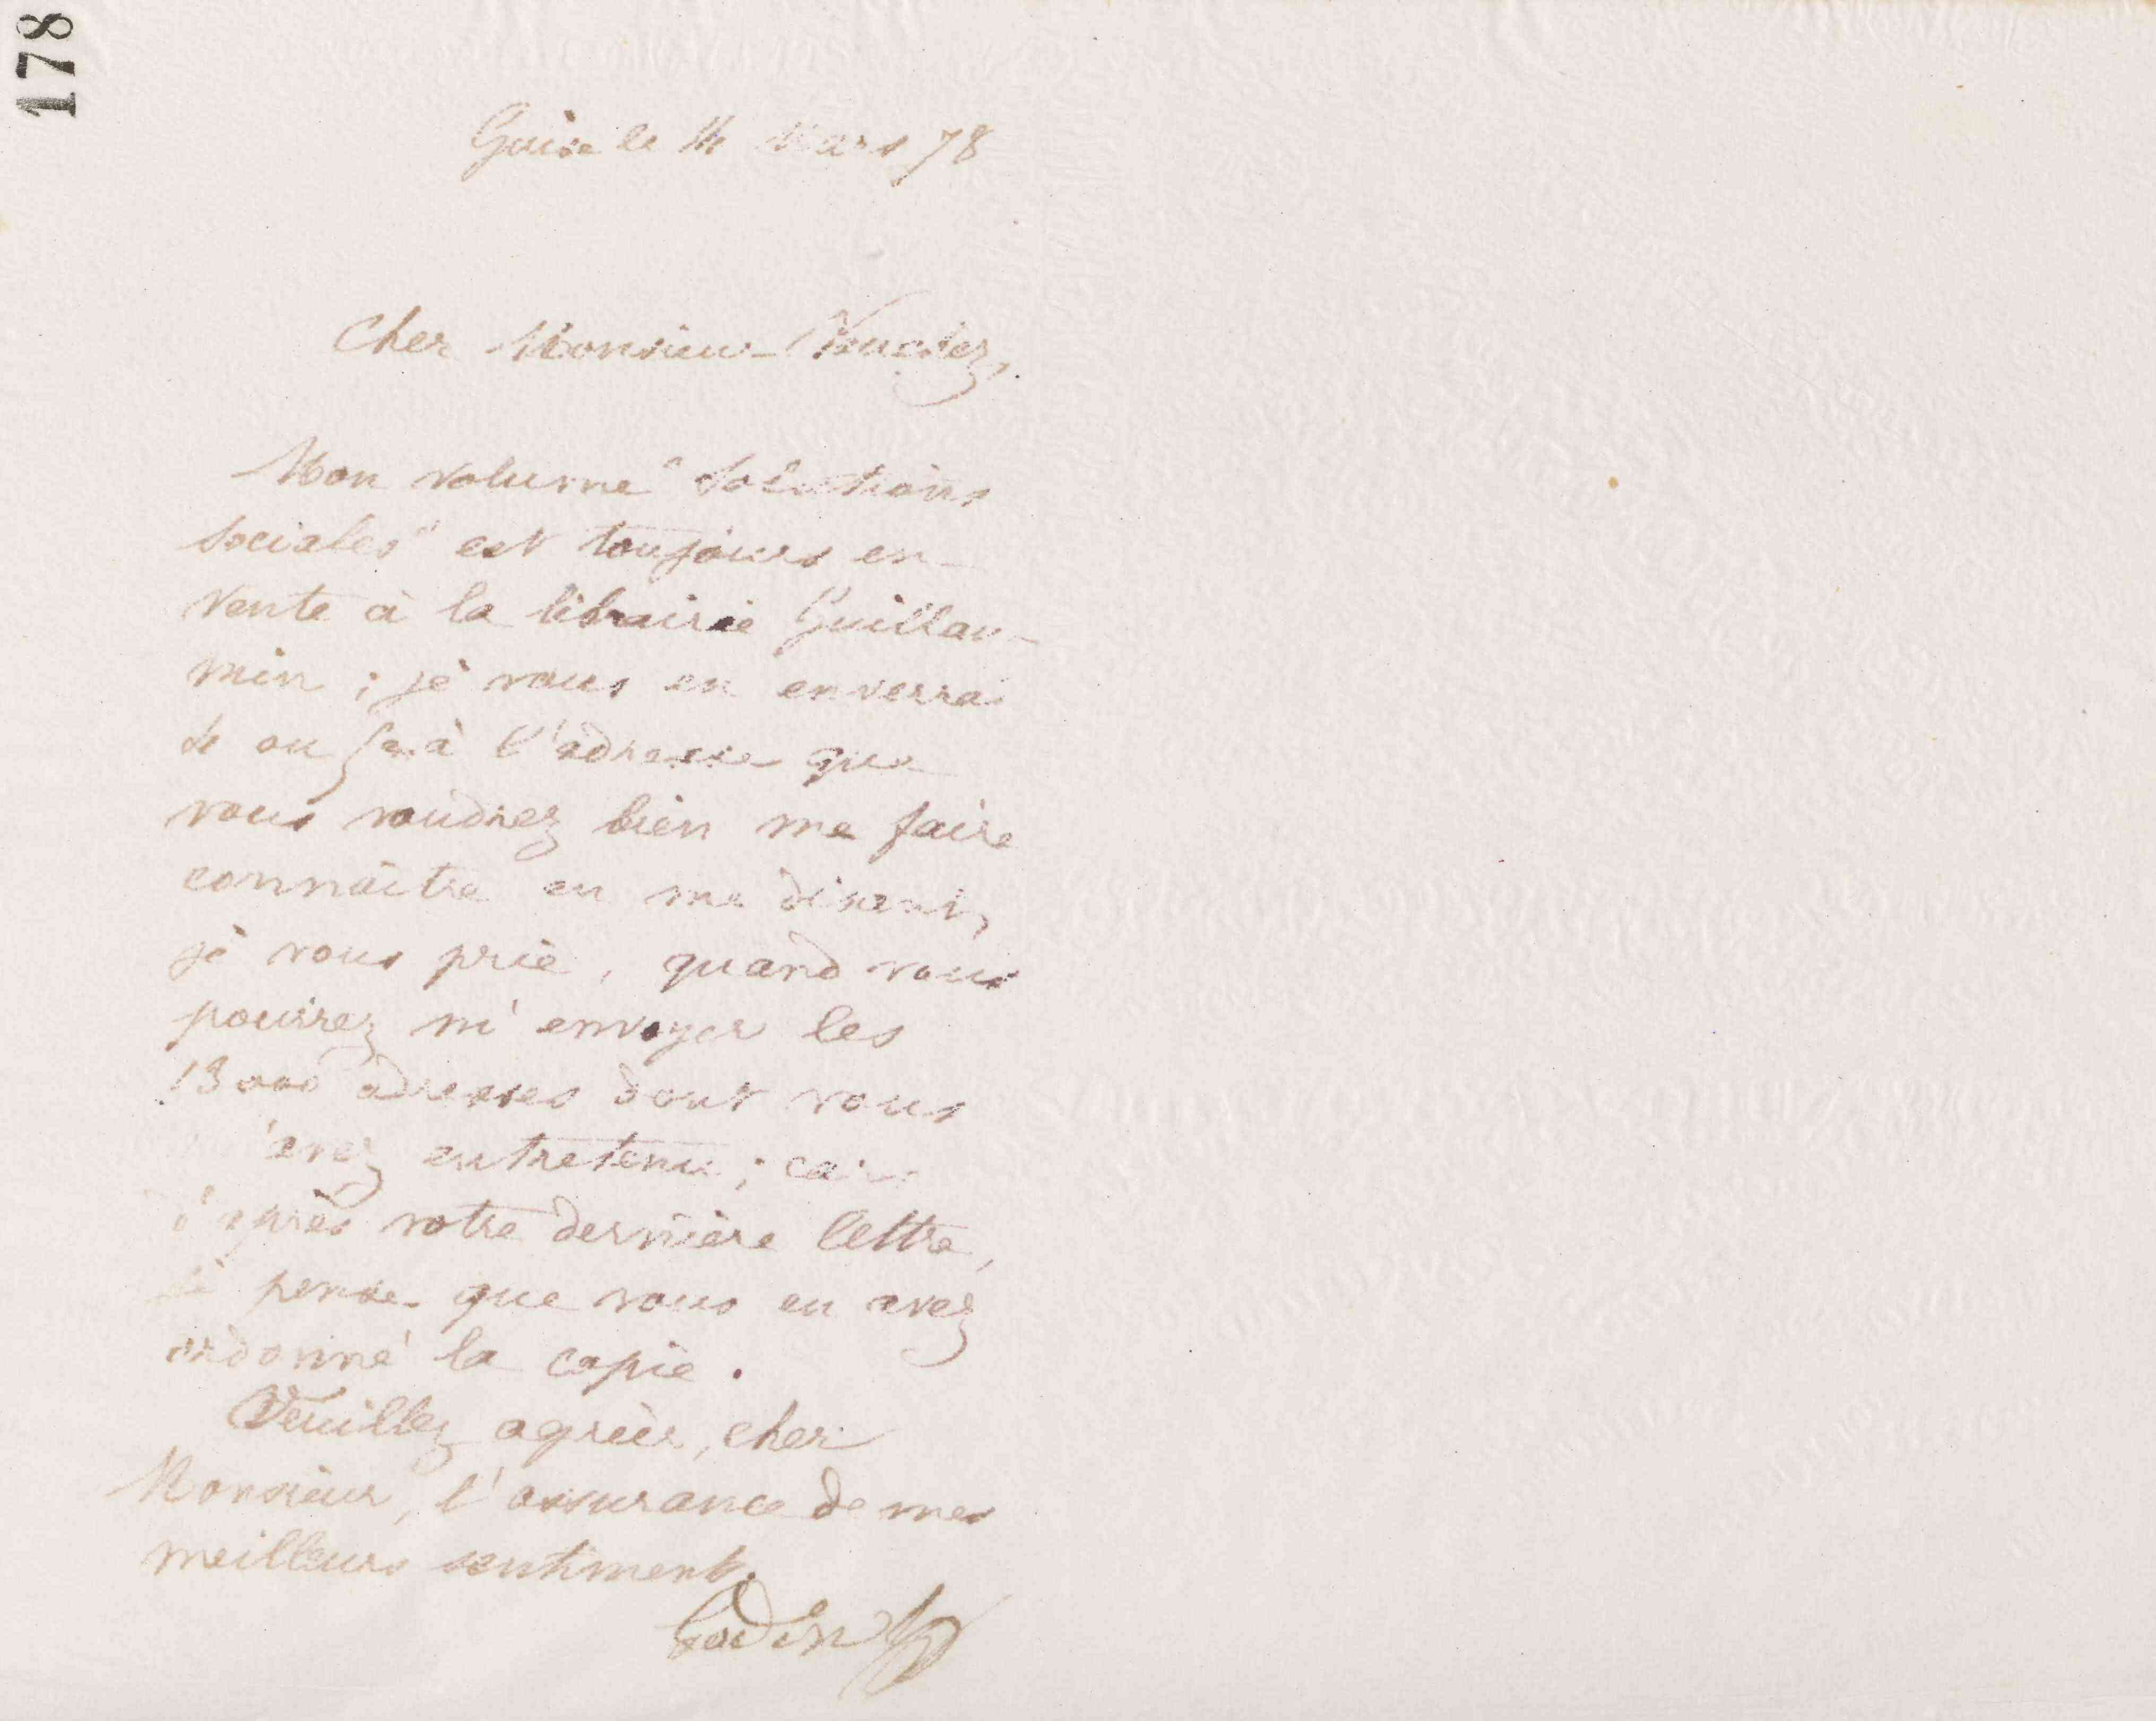 178
Guise le 14 Mars 78
Cher Monsieur
Mon volume "Solutions
Sociales" est toujours en
vente à la librairie Guillau-
min ; je vous en enverrai
4 ou 5 à l'adresse que
vous voudrez bien me faire
connaître en me disant,
je vous prie, quand vous
pourrez m'envoyer les
13000 adresses dont vous
m'avez entretenu ; car
d'après votre dernière lettre,
je pense que vous en avez
ordonné la copie.
Veuillez agréer, cher
Monsieur, l'assurance de mes
meilleurs sentiments.
Godin